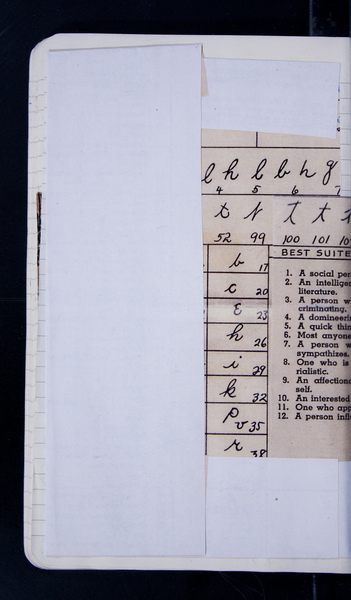 l h l b h g
4 5 6 7
t t t t t
52 99 100 101 10
b 17
c 20
ε 23
h 26
i 29
k 32
p v 35
r 38
BEST SUITE
1. A social per
2. An intellige
literature.
3. A person w
criminating.
4. A domineeri
5. A quick thin
6. Most anyone
7. A person w
sympathizes.
8. One who is
rialistic.
9. An affectiona
self.
10. An interested
11. One who app
12. A person infl